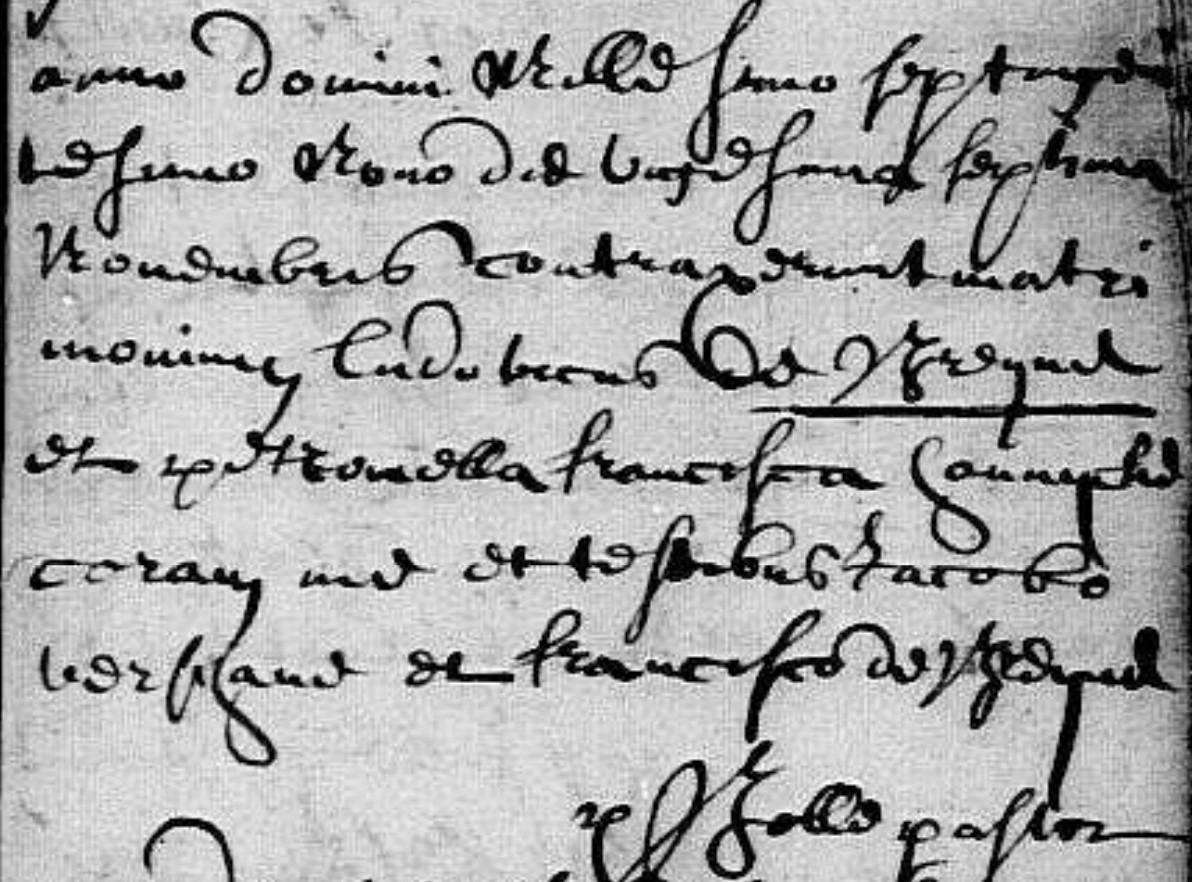 anno Domini Millesimo septingen
tesimo Nono die vigesima septima
Novembris contraxerunt matri
monium Ludovicus de
et petronella francisca
coram me et testibus Jacobo
et francisco de
pastor